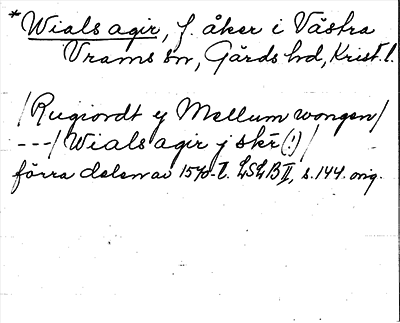 *Wials agir, f. åker i Västra
Vrams sn, Gärds hd, Krist. l.
/Rugiordt ej Mellum wongen/
---/Wials agir j skr̄ (!)/
förra delen av 1570-t. LSLB II, s. 144. orig.